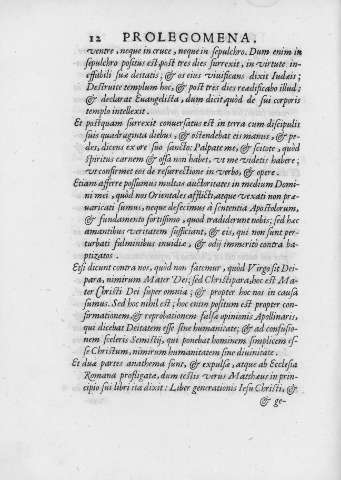 12 PROLEGOMENA.
ventre, neque in cruce, neque in sepulchro. Dum enim in
sepulchro positus est post tres dies surrexit, in virtute in-
effabili suæ deitatis; & os eius viuificans dixit Iudæis;
Destruite templum hoc, & post tres dies reædificabo illud;
& declarat Euangelista, dum dicit quòd de sui corporis
templo intellexit.
Et postquam surrexit conuersatus est in terra cum discipulis
suis quadraginta diebus, & ostendebat eis manus, & pe-
des, dicens ex ore suo sancto: Palpate me, & scitote, quòd
spiritus carnem & ossa non habet, vt me videtis habere;
vt confirmet eos de resurrectione in verbo, & opere.
Etiam afferre possumus multas auctoritates in medium Domi-
ni mei, quòd nos Orientales afflicti, atque vexati non præ-
uaricati sumus, neque defecimus à sententia Apostolorum,
& fundamento fortissimo, quod tradiderunt nobis; sed hæc
amantibus veritatem sufficiant, & eis, qui non sunt per-
turbati fulminibus inuidiæ, & odij immeritò contra ba-
ptizatos.
Etsi dicunt contra nos, quòd non fatemur, quòd Virgo sit Dei-
para, nimirum Mater Dei; sed Christipara, hoc est Ma-
ter Christi Dei super omnia; & propter hoc nos in causa
sumus. Sed hoc nihil est; hoc enim positum est propter con-
firmationem, & reprobationem falsæ opinionis Apollinaris,
qui dicebat Deitatem esse sine humanitate; & ad confusio-
nem sceleris Semistij, qui ponebat hominem simplicem es-
se Christum, nimirum humanitatem sine diuinitate.
Et duæ partes anathema sunt, & expulsæ, atque ab Ecclesia
Romana profligatæ, dum testis verus Matthæus in prin-
cipio sui libri ita dixit: Liber generationis Iesu Christi, &
& ge-